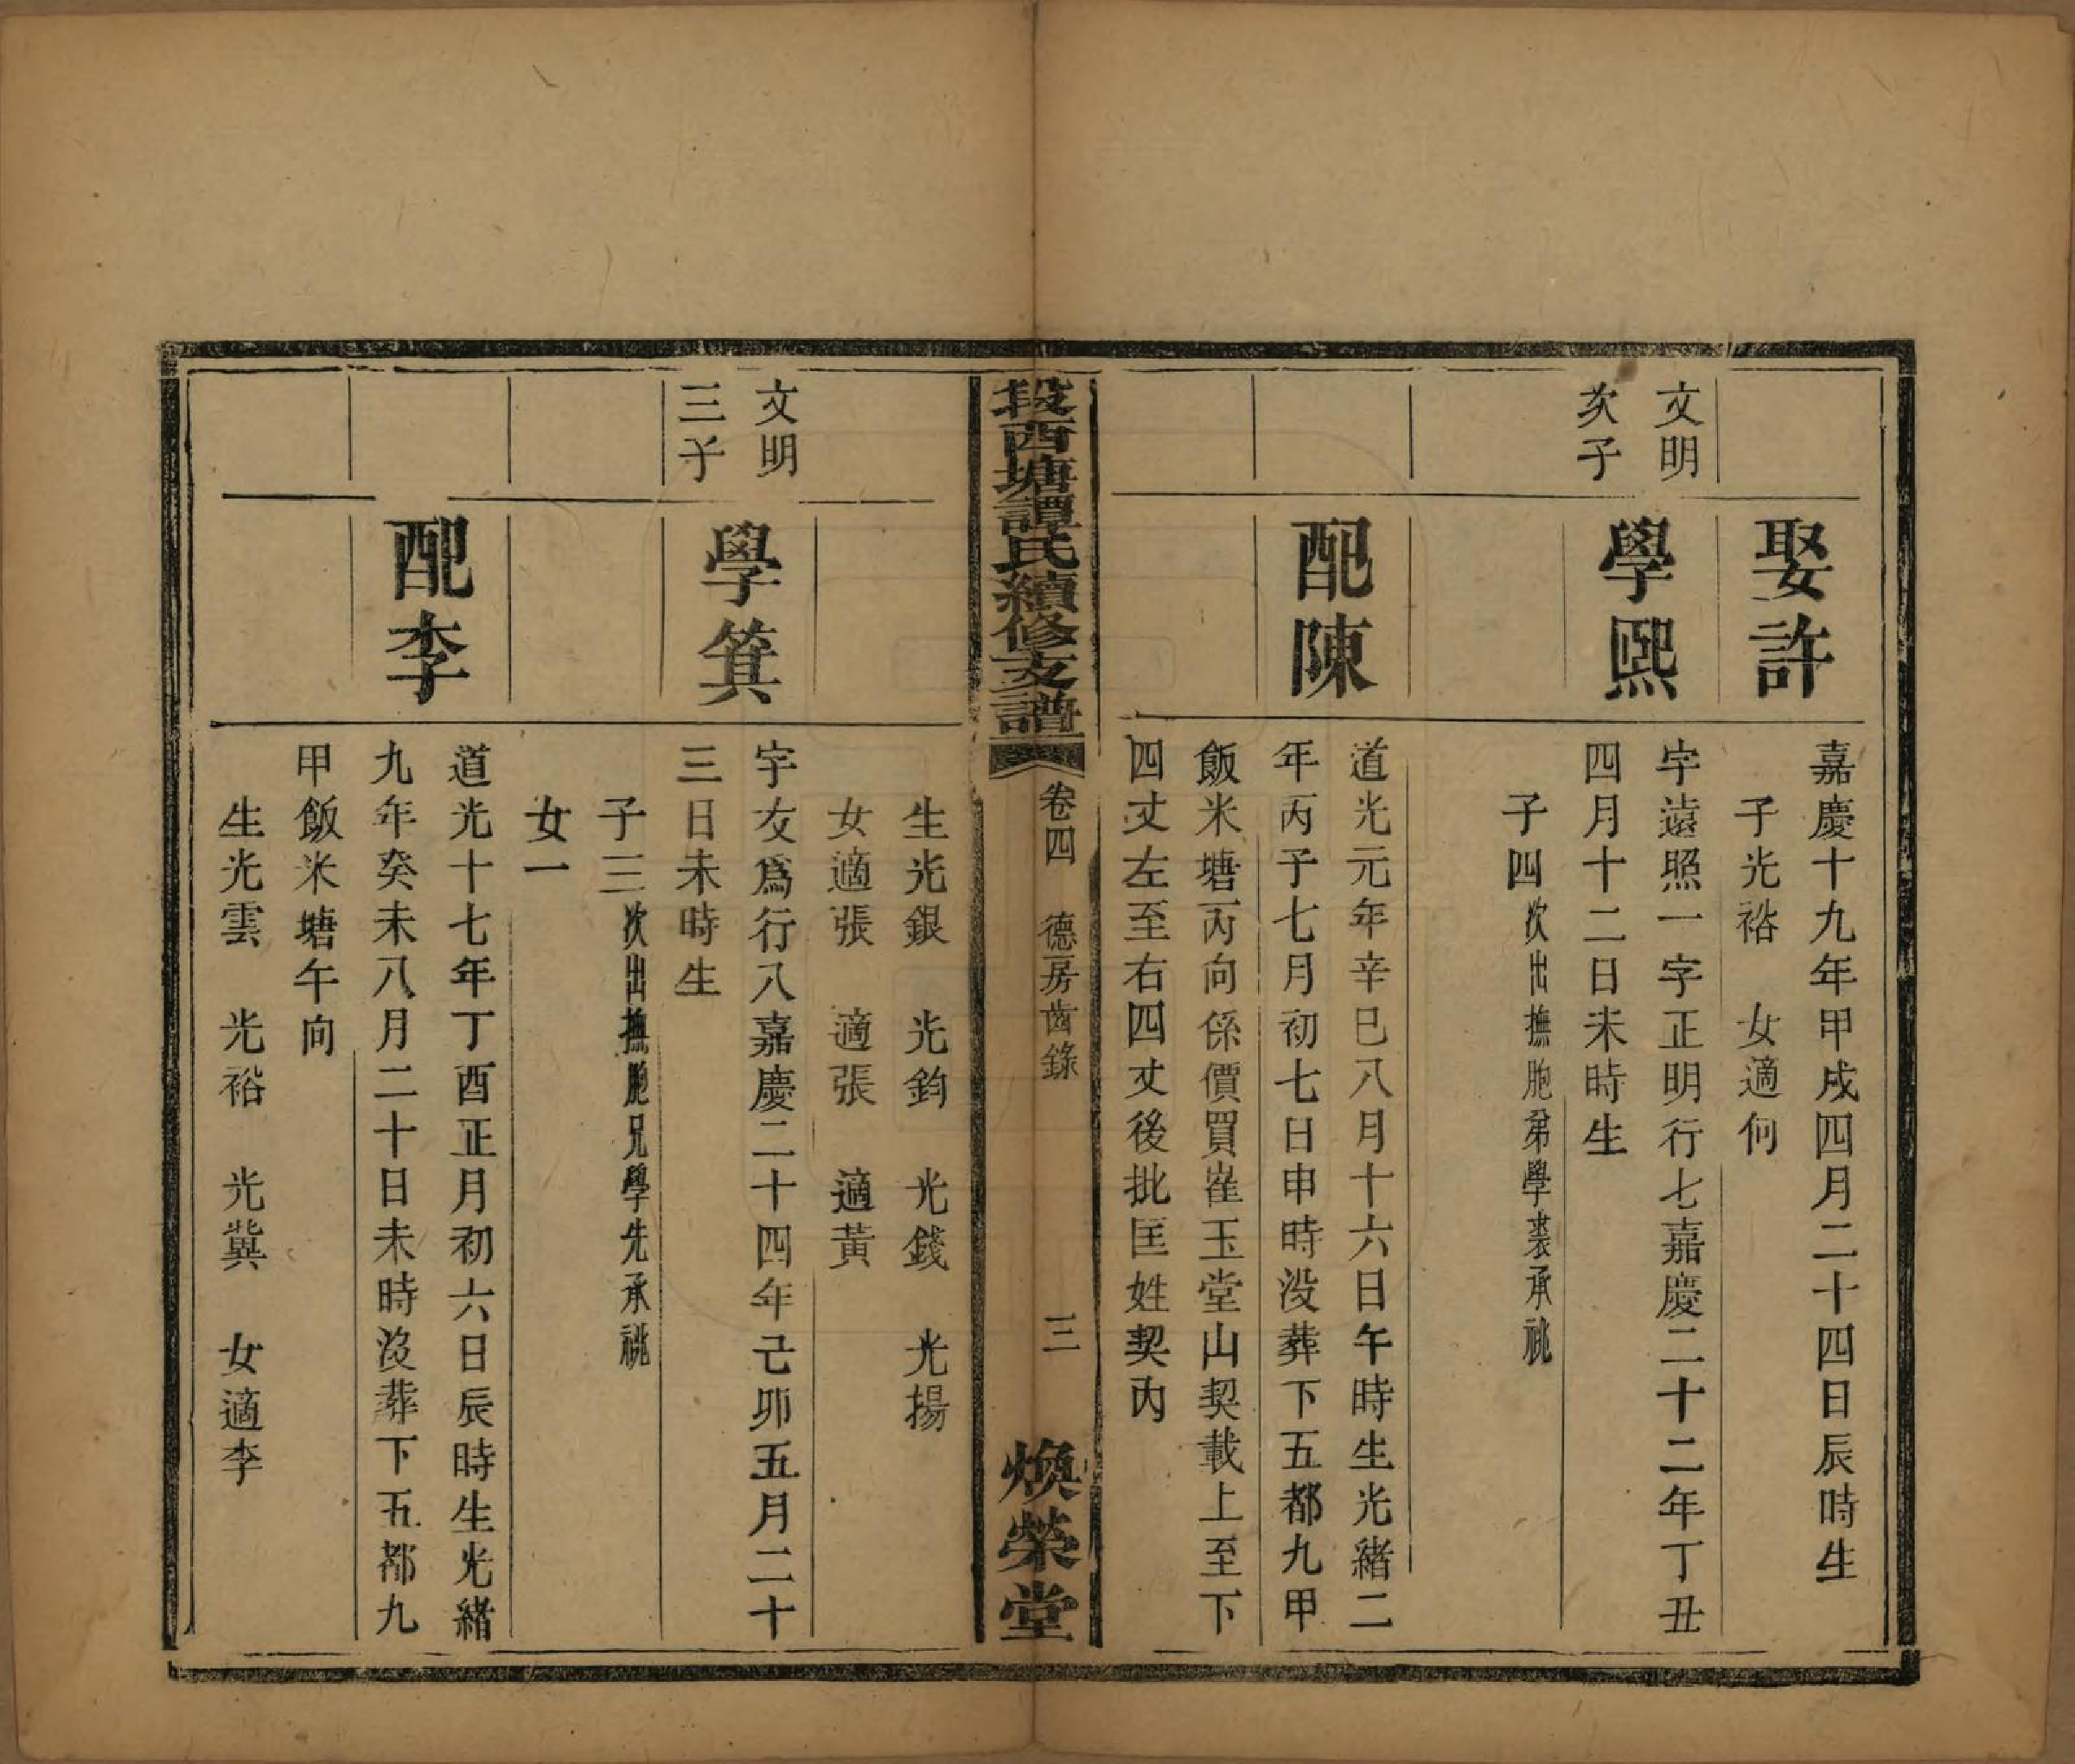 娶許
嘉慶十九年甲戌四月二十四日辰時生
子光裕　女適何
文明
次子
學熙
字遠照一字正明行七嘉慶二十二年丁丑
四月十二日未時生
子四次出撫胞弟學裘承祧
配陳
道光元年辛巳八月十六日午時生光緒二
年丙子七月初七日申時没葬下五都九甲
飯米塘丙向係價買崔玉堂山契載上至下
四丈左至右四丈後批匡姓契內
段西塘譚氏續修支譜
卷四　德房齒錄
三
煥榮堂
生光銀　光鈞　光錢　光揚
女適張　適張　適黃
文明
三子
學箕
字友爲行八嘉慶二十四年己卯五月二十
三日未時生
子三次出撫胞兄學先承祧
女一
配李
道光十七年丁酉正月初六日辰時生光緒
九年癸未八月二十日未時沒葬下五都九
甲飯米塘午向
生光雲　光裕　光冀　女適李